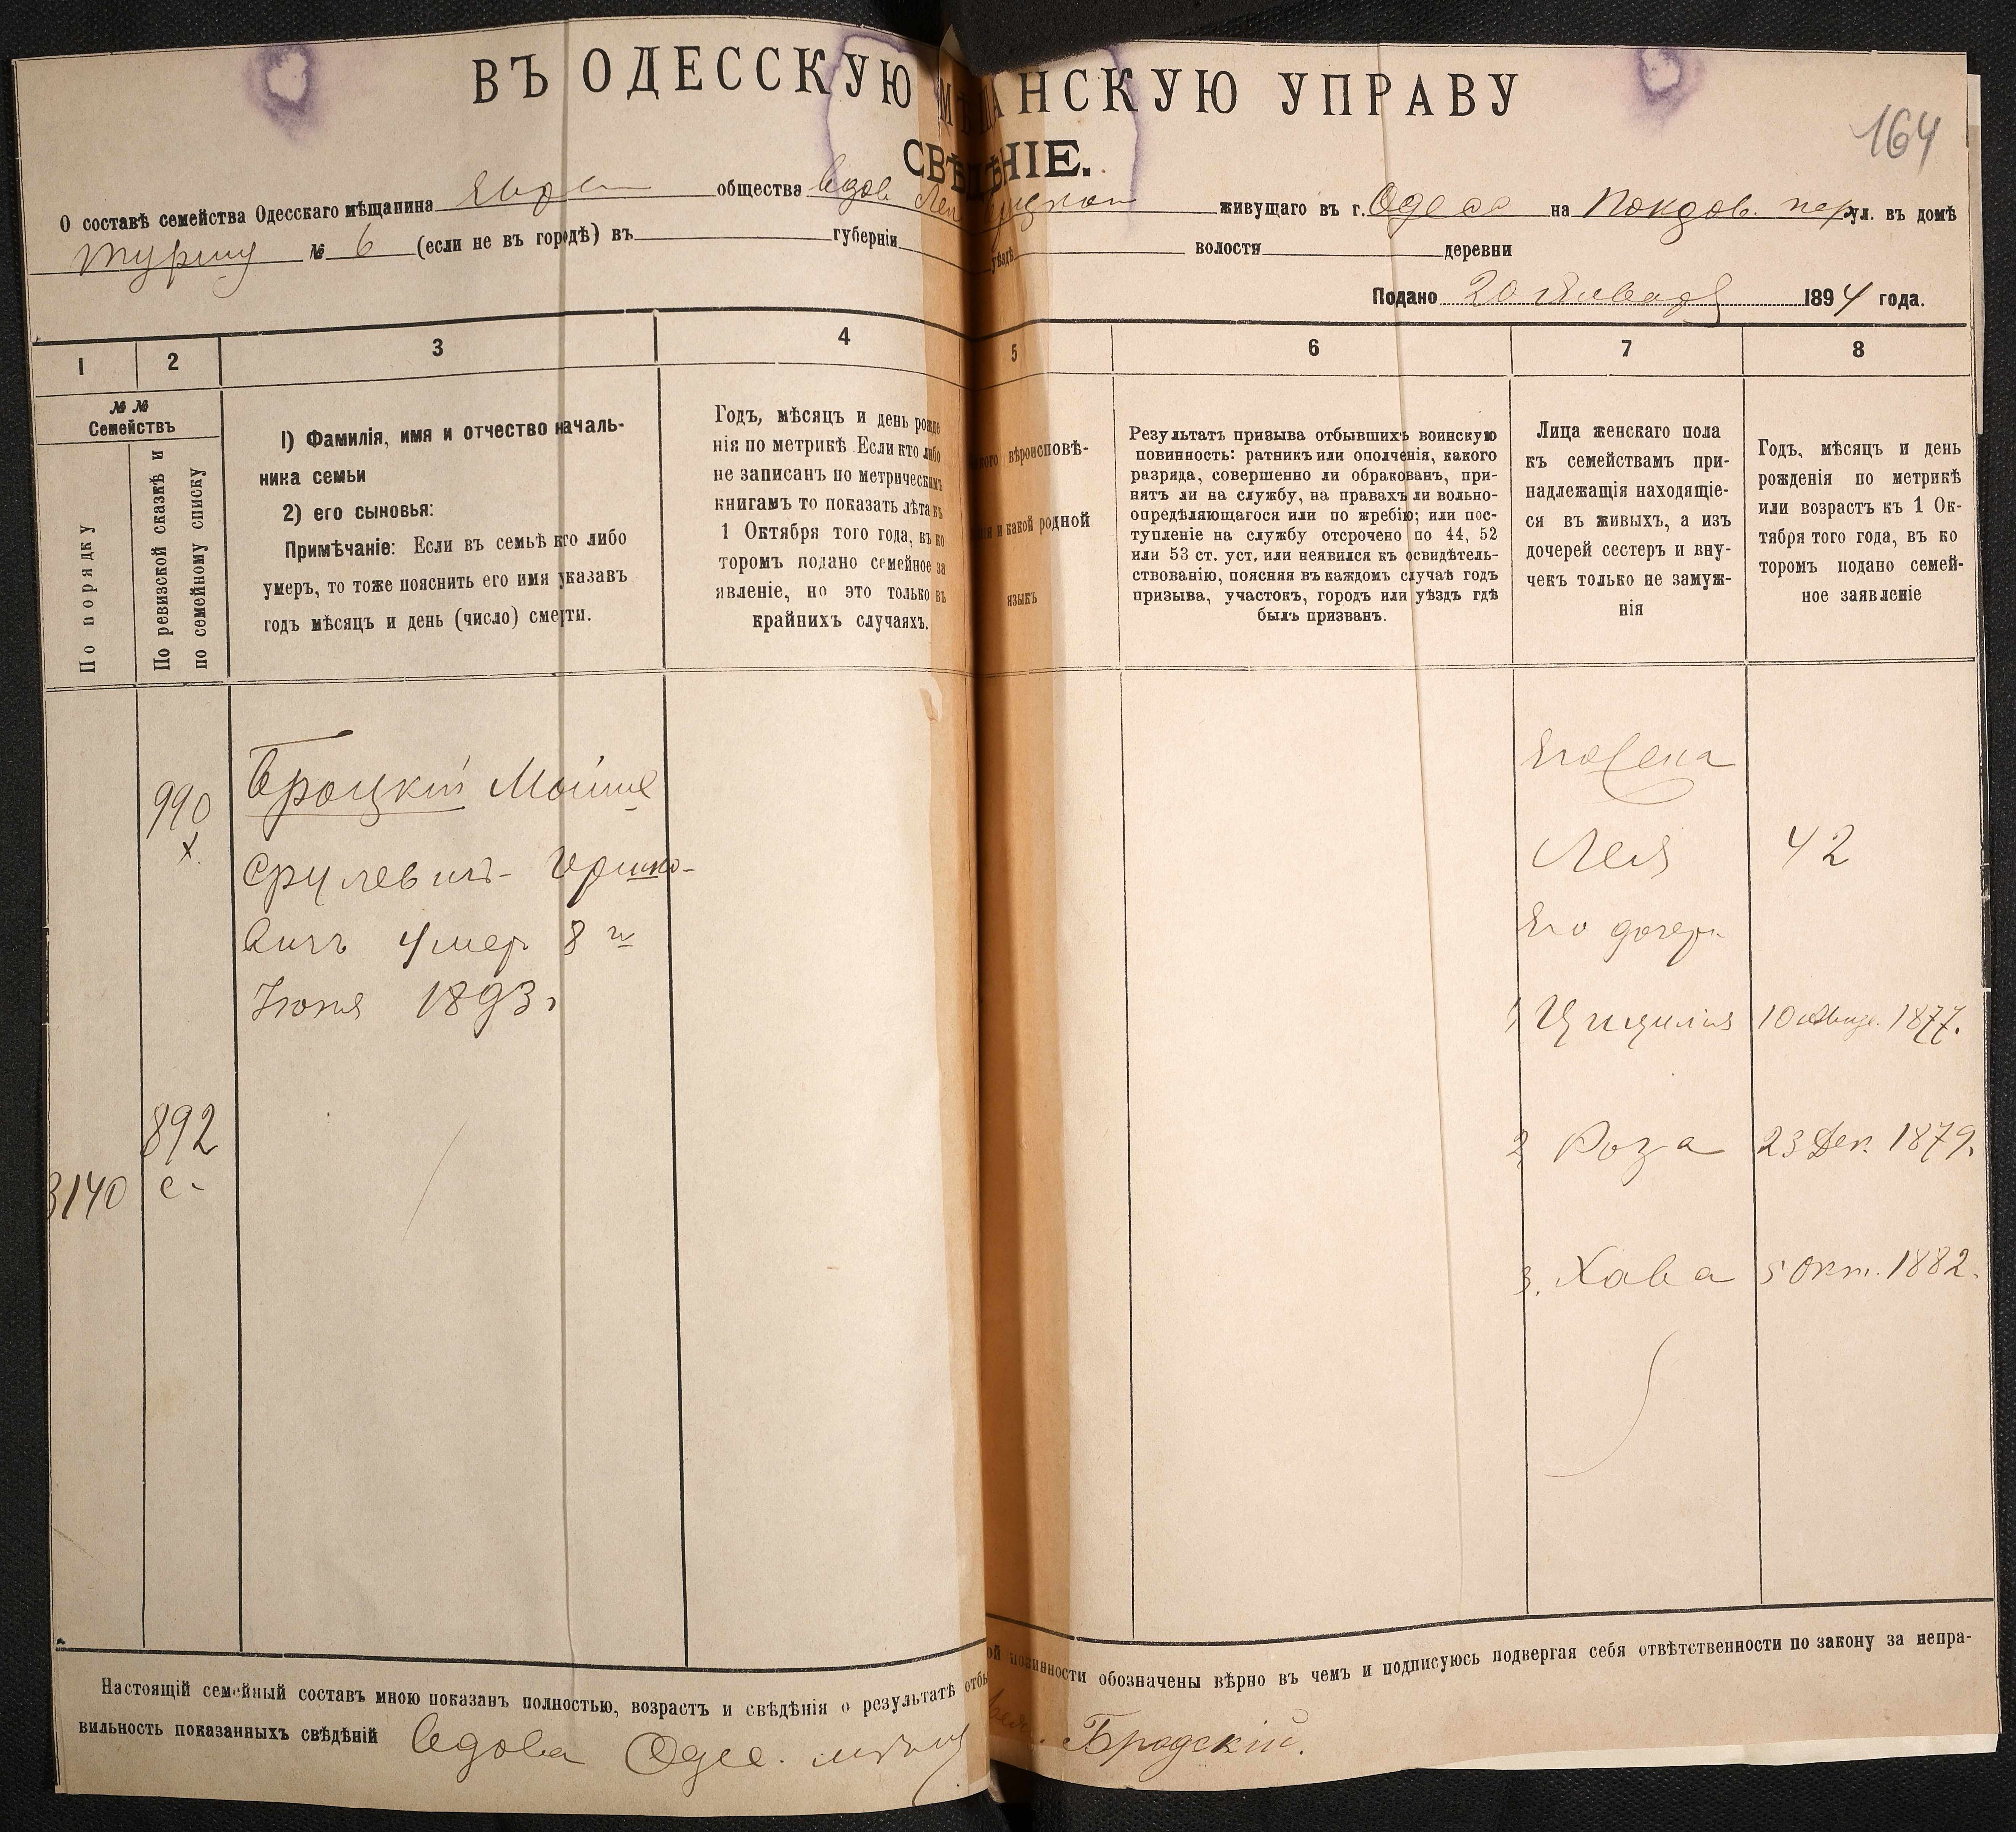 164
ВЪ ОДЕССКУЮ МѢЩАНСКУЮ УПРАВУ
СВѢДѢНІЕ.
О составѣ семейства Одесскаго мѣщанина Евр общества вдов. Леи живущаго въ г. Одесса на Покров. пер ул. въ домѣ
№ 6 (если не въ городѣ) въ губерніи уѣздѣ волости деревни
Подано 20 Января 1894 года.
1 2 3 4 5 6 7 8
№ №
Семействъ
По порядку
По ревизской сказкѣ и
по семейному списку
1) Фамилія, имя и отчество началь-
ника семьи
2) его сыновья:
Примѣчаніе: Если въ семьѣ кто либо
умеръ, то тоже пояснить его имя указавъ
годъ мѣсяцъ и день (число) смерти.
Годъ, мѣсяцъ и день рожде
нія по метрикѣ Если кто либо
не записанъ по метрическимъ
книгамъ то показать лѣта къ
1 Октября того года, въ ко
торомъ подано семейное за
явленіе, но это только въ
крайнихъ случаяхъ.
вѣроисповѣ-
и какой родной
языкъ
Результатъ призыва отбывшихъ воинскую
повинность: ратникъ или ополченія, какого
разряда, совершенно ли обракованъ, при-
нятъ ли на службу, на правахъ ли вольно-
опредѣляющагося или по жребію; или пос-
тупленіе на службу отсрочено по 44, 52
или 53 ст. уст. или неявился къ освидѣтель-
ствованію, поясняя въ каждомъ случаѣ годъ
призыва, участокъ, городъ или уѣздъ гдѣ
былъ призванъ.
Лица женскаго пола
къ семействамъ при-
надлежащія находящіе-
ся въ живыхъ, а изъ
дочерей сестеръ и вну-
чекъ только не замуж-
нія
Годъ, мѣсяцъ и день
рожденія по метрикѣ
или возрастъ къ 1 Ок-
тября того года, въ ко
торомъ подано семей-
ное заявленіе
990
х.
Броцкій Мойше
Срулевичъ- Гершко-
вичъ умер 8 го
Іюня 1893 г
Его жена
Лея 42
Его дочери
1, Цицилия 1877.
2, Роза 23 Дек. 1879.
3. Хава 5 Окт. 1882.
892
с-
3140
Настоящій семейный составъ мною показанъ полностью, возрастъ и свѣдѣнія о результатѣ отбы повинности обозначены вѣрно въ чемъ и подписуюсь подвергая себя отвѣтственности по закону за непра-
вильность показанныхъ свѣдѣній вдова Одес. Бродскій.